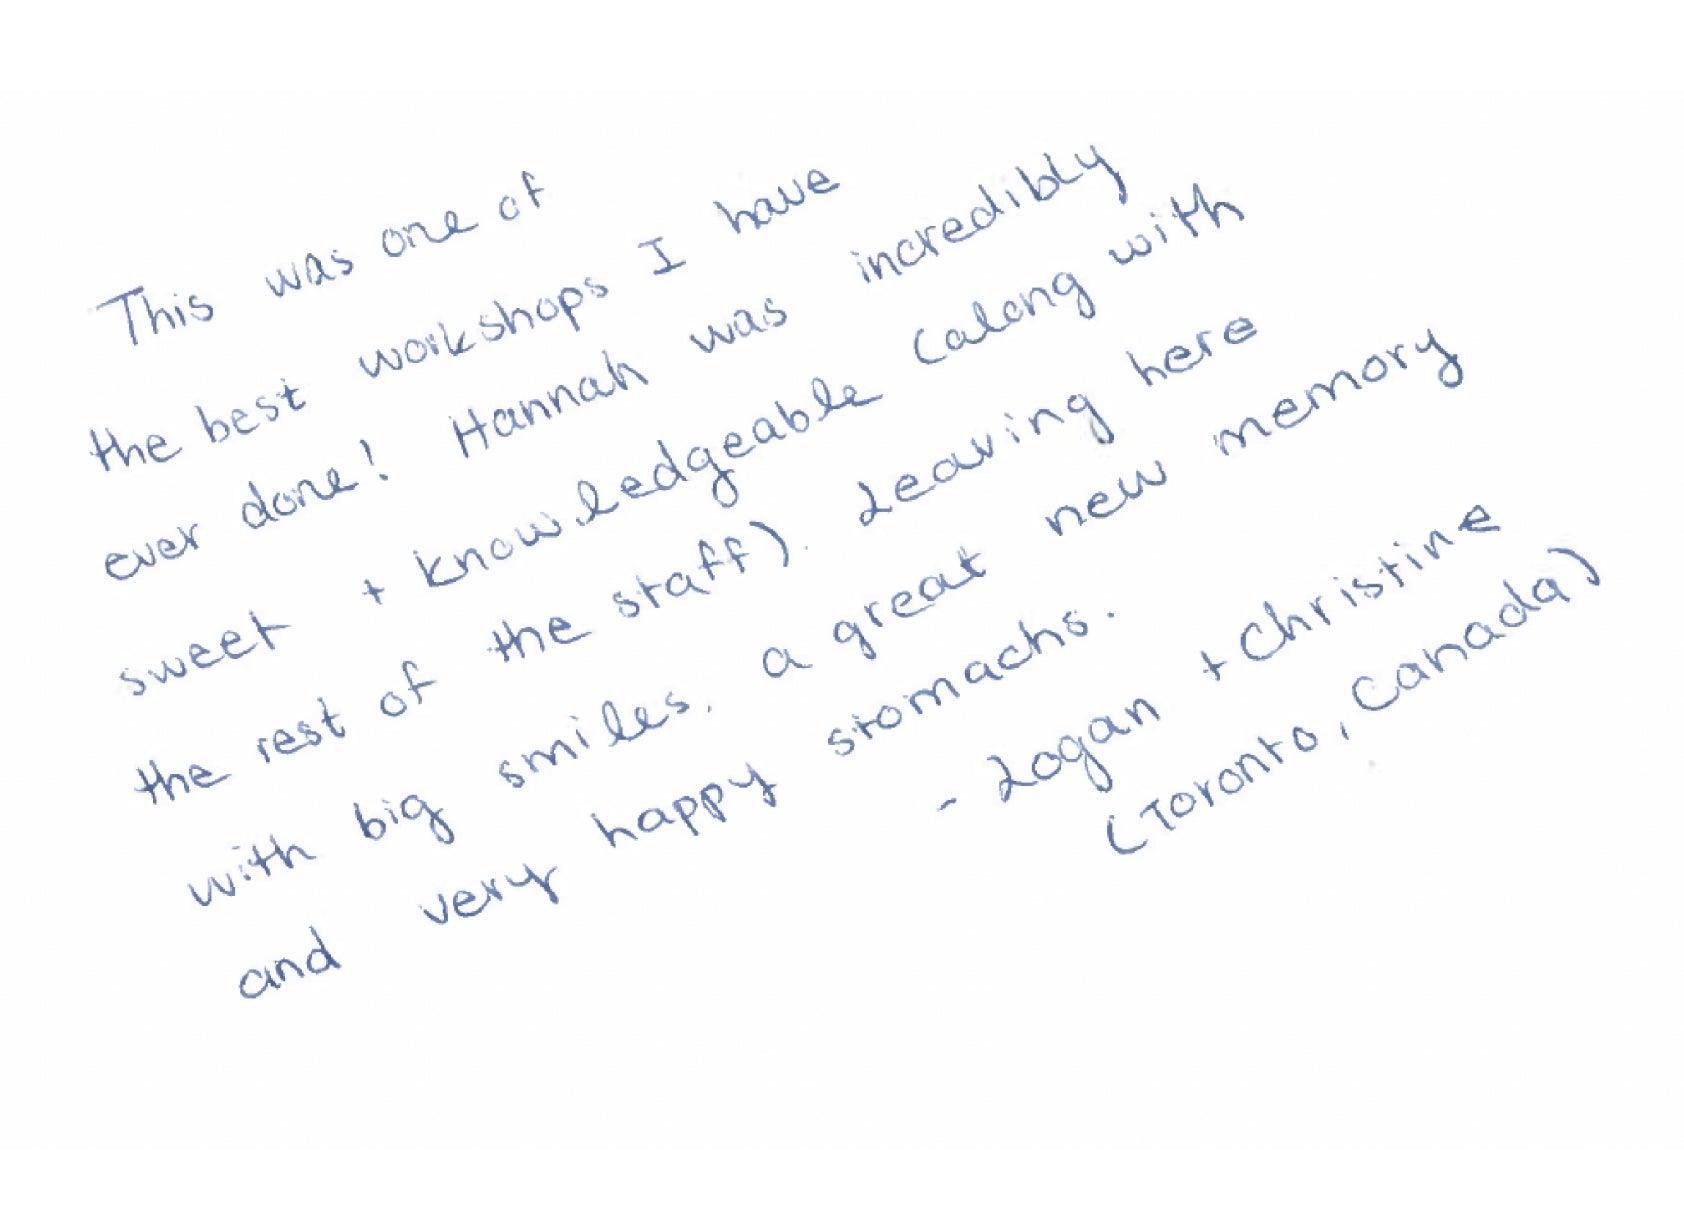 This was one of
the best workshops I have
ever done! Hannah was incredibly
sweet + knowledgeable (along with
the rest of the staff). Leaving here
with big smiles, a great new memory
and very happy stomachs.
- Logan + Christine
(Toronto, Canada)